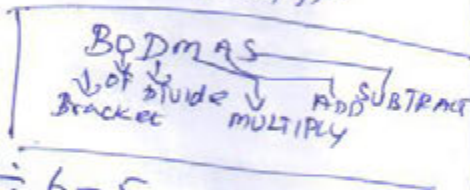 BODMAS
Bracket OF Divide MULTIPLY ADD SUBTRACT
÷ 6 - 5